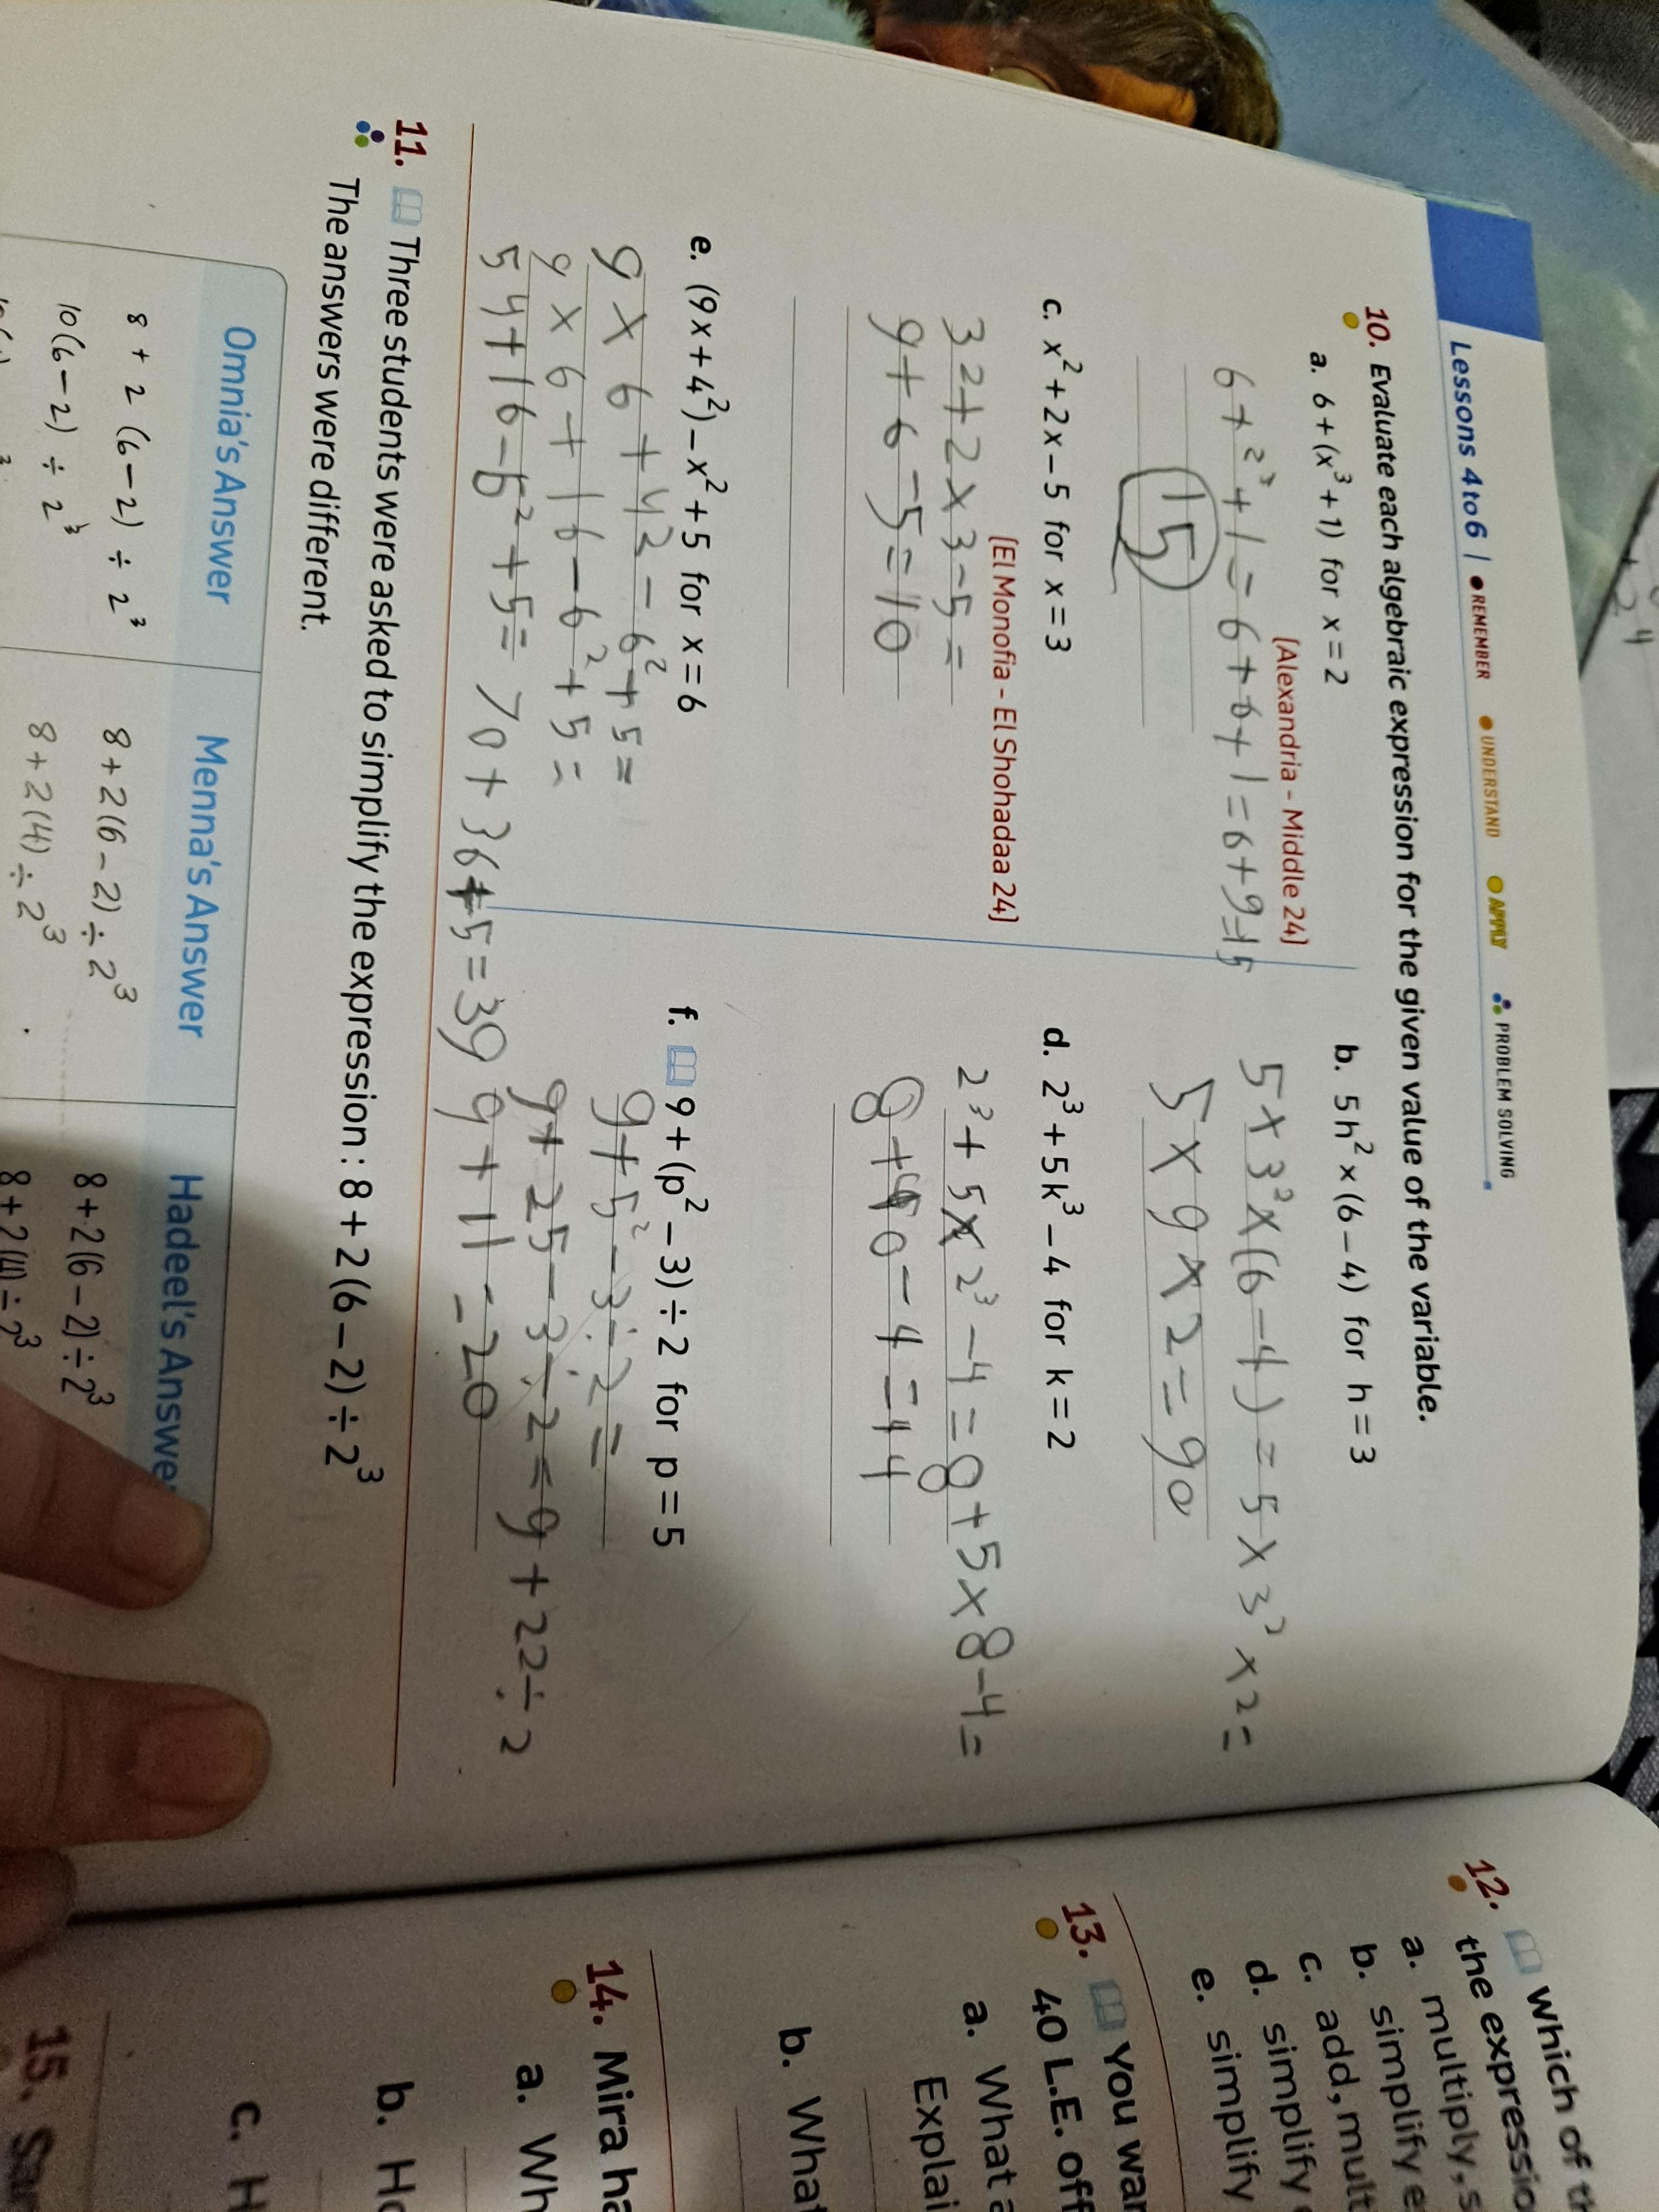 Lessons 4 to 6 | • REMEMBER • UNDERSTAND • APPLY PROBLEM SOLVING
10. Evaluate each algebraic expression for the given value of the variable.
a. 6 + (x³ + 1) for x = 2
(Alexandria - Middle 24)
6 + 2³ + 1 = 6 + 8 + 1 = 6 + 9 = 15
15
b. 5 h² × (6 – 4) for h = 3
5 × 3² × (6 – 4) = 5 × 3² × 2 =
5 × 9 × 2 = 90
c. x² + 2 x – 5 for x = 3
(El Monofia - El Shohadaa 24)
32 + 2 × 3 – 5 =
9 + 6 – 5 = 10
d. 2³ + 5 k³ – 4 for k = 2
2³ + 5 × 2³ – 4 = 8 + 5 × 8 – 4 =
8 + 40 – 4 = 44
e. (9 x + 4²) – x² + 5 for x = 6
9 × 6 + 42 – 6² + 5 =
9 × 6 + 16 – 6² + 5 =
54 + 16 – 6² + 5 = 70 + 36 + 5 = 39
f. 9 + (p² – 3) ÷ 2 for p = 5
9 + 5² – 3 ÷ 2 =
9 + 25 – 3 ÷ 2 = 9 + 22 ÷ 2
9 + 11 = 20
11. Three students were asked to simplify the expression : 8 + 2 (6 – 2) ÷ 2³
The answers were different.
Omnia's Answer
8 + 2 (6 – 2) ÷ 2³
10 (6 – 2) ÷ 2³
Menna's Answer
8 + 2 (6 – 2) ÷ 2³
8 + 2 (4) ÷ 2³
Hadeel's Answe
8 + 2 (6 – 2) ÷ 2³
8 + 2 (4) ÷ 2³
12. Which of
the expressio
a. multiply, s
b. simplify e
c. add, mult
d. simplify
e. simplify
13. You war
40 L.E. off
a. What a
Explai
b. What
14. Mira ha
a. Wh
b. Ho
c. H
15. Sar